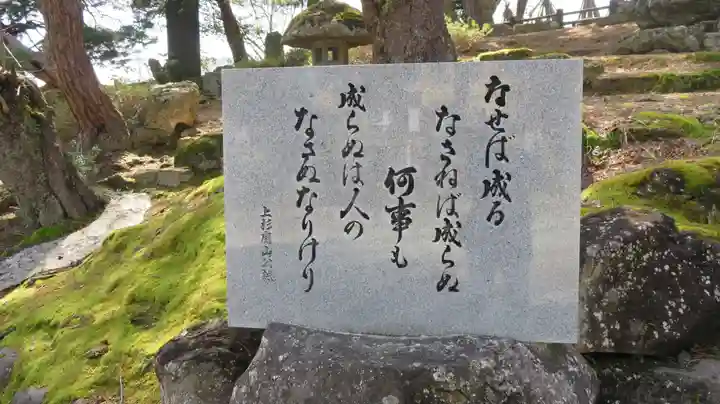 なせば成る
なさねば成らぬ
何事も
成らぬは人の
なさぬなりけり
上杉鷹山公